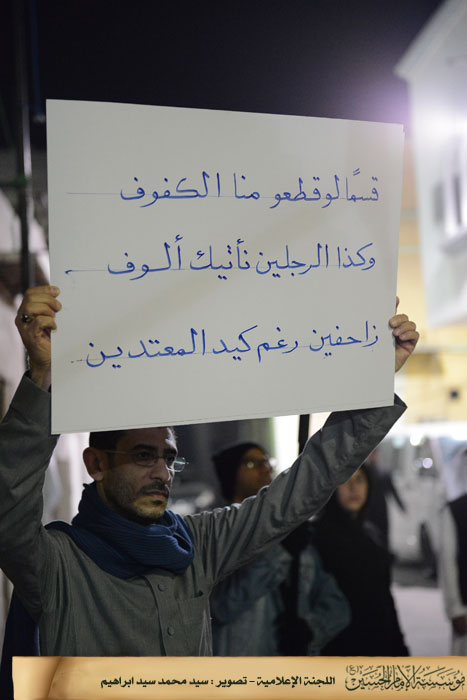 قسمًا لو قطعو منا الكفوف
وكذا الرجلين نأتيك ألوف
زاحفين رغم كيد المعتدين
مؤسسة الإمام الحسين (ع)
اللجنة الإعلامية - تصوير : سيد محمد سيد ابراهيم